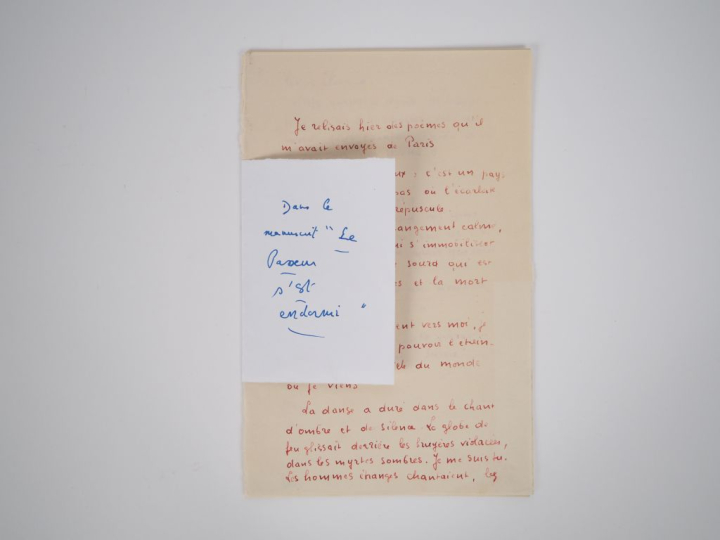 Je relisais hier des poèmes qu'il
m'avait envoyés de Paris
: c'est un pay
ou l'écarlat
répuscule.
angement calme,
s'immobiliser
sourd qui est
s et la mort
ent vers moi, je
pouvoir
du monde
où je viens
La danse a duré dans le chant
d'ombre et de silence. Le globe de
feu glissait derrière les bruyères
dans les myrtes sombres. Je me suis tu.
Les hommes étranges chantaient, les
Dans le
manuscrit "Le
Passeur
s'est
endormi"